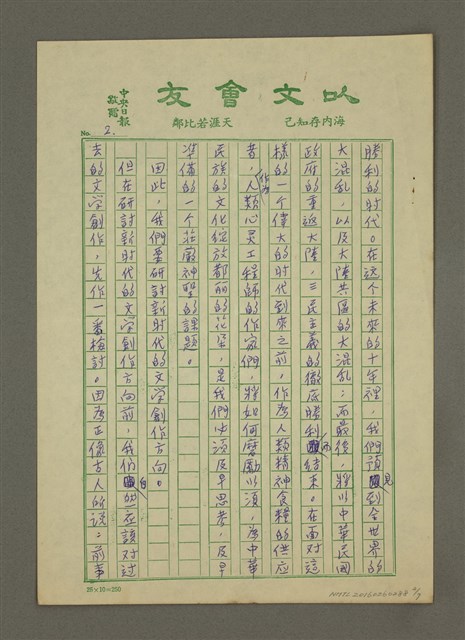 以文會友
海內存知己
天涯若比鄰
中央日報
敬贈
No. 2.
勝利的时代。在这个未來的十年裡，我們預見到全世界的
大混乱，以及大陸共區的大混乱；而最後，將以中華民国
政府的重返大陸，三民主義的徹底勝利而結束。在面对這
樣的一个偉大的时代到來之前，作為人類精神食糧的供应
者，作為人類心灵工程師的作家們，將如何磨励以須，為中華
民族的文化綻放都丽的花朵，是我們必須及早思考，及早
準備的一个莊嚴神聖的課題。
因此，我們要研討新时代的文学創作方向。
但在研討新时代的文学創作方向前，我們自应該对过
去的文学創作，先作一番檢討。因為正像古人所說：前事
25×10=250